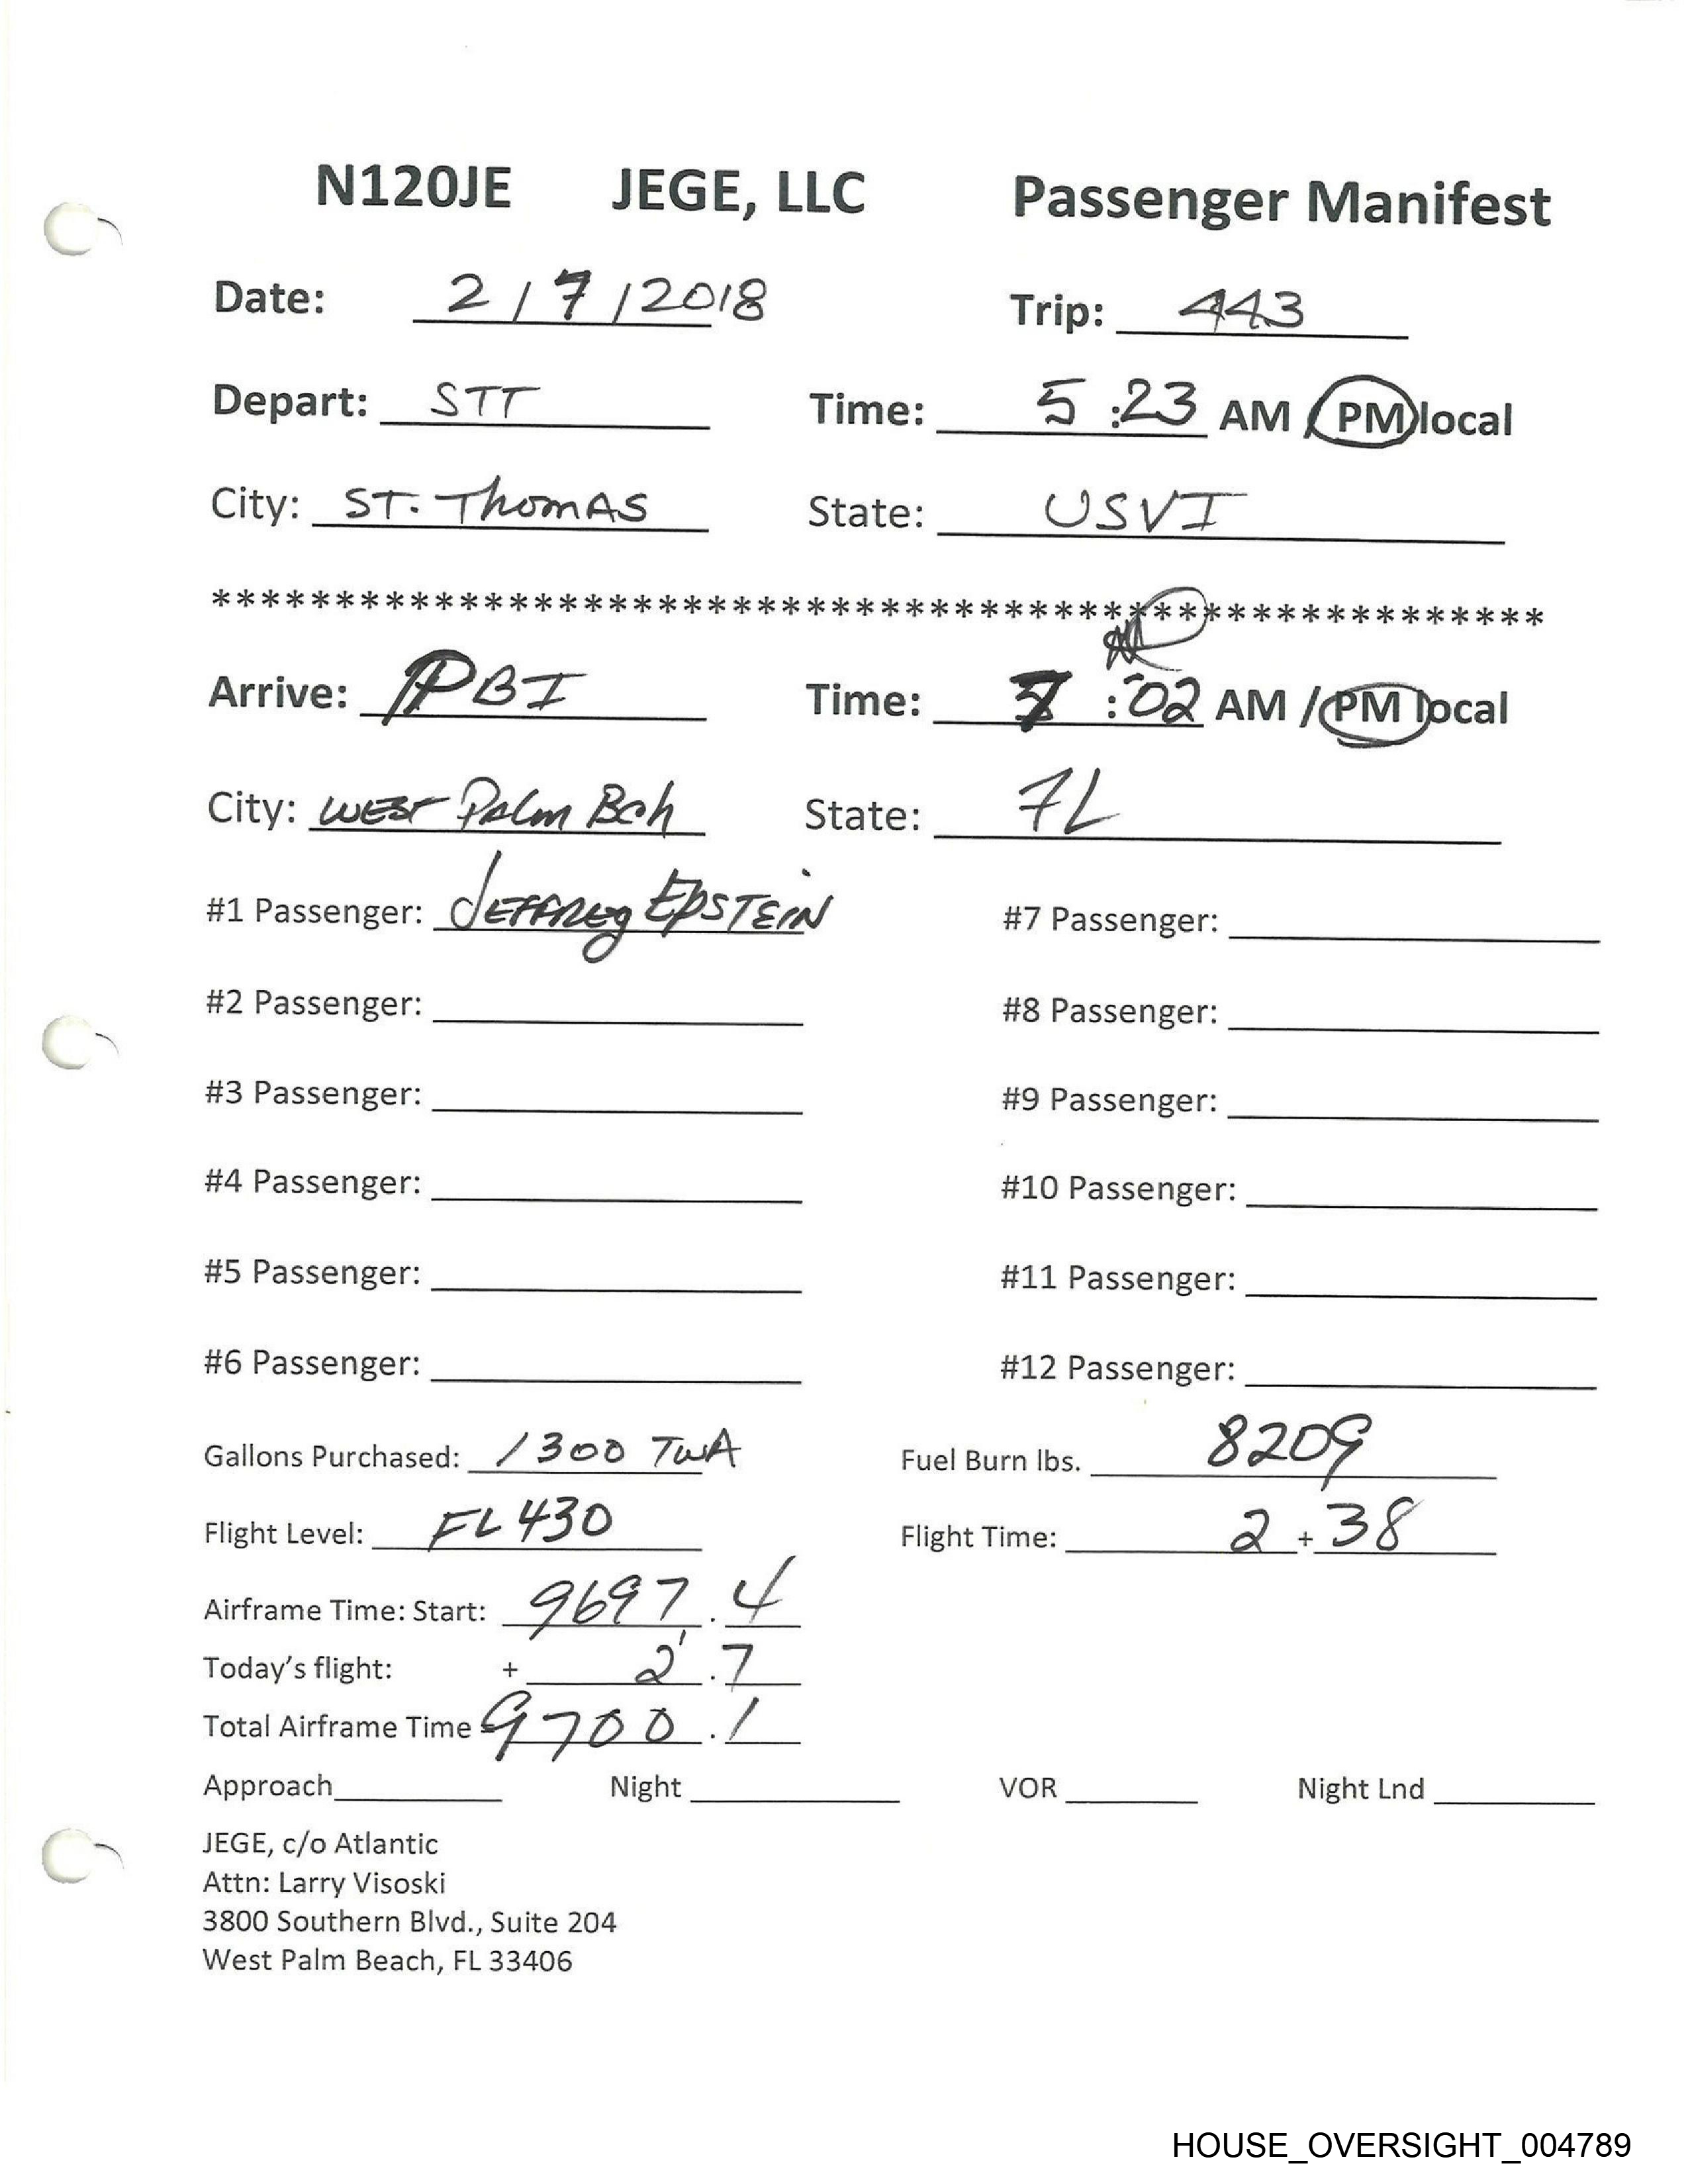 N120JE JEGE, LLC Passenger Manifest
Date: 2/7/2018 Trip: 443
Depart: STT Time: 5:23 AM / PM local
City: ST. ThomAS State: USVI
******************************************************
Arrive: PBI Time: 7:02 AM / PM local
City: WEST PALm Bch State: FL
#1 Passenger: JEFFREY EPSTEIN #7 Passenger:
#2 Passenger: #8 Passenger:
#3 Passenger: #9 Passenger:
#4 Passenger: #10 Passenger:
#5 Passenger: #11 Passenger:
#6 Passenger: #12 Passenger:
Gallons Purchased: 1300 TWA Fuel Burn lbs. 8209
Flight Level: FL 430 Flight Time: 2 + 38
Airframe Time: Start: 9697.4
Today's flight: + 2.7
Total Airframe Time = 9700.1
Approach Night VOR Night Lnd
JEGE, c/o Atlantic
Attn: Larry Visoski
3800 Southern Blvd., Suite 204
West Palm Beach, FL 33406
HOUSE_OVERSIGHT_004789